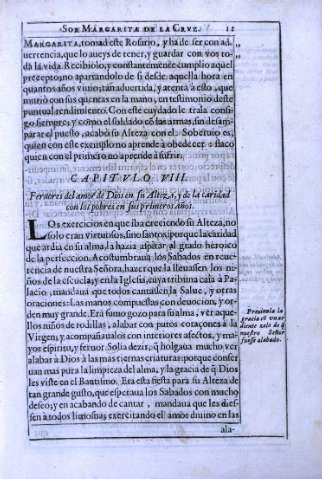 SOR MARGARITA DE LA CRVZ. 11
MARGARITA, tomad este Rosario, y ha de ser con ad-
uertencia, que lo aueys de tener, y guardar con vos to-
da la vida. Recibiolo, y constantemente cumplio aquel
precepto, no apartandolo de si desde aquella hora en
quantos años viuio; tan aduertida, y atenta à esto, que
murio con sus quentas en la mano, en testimonio deste
puntual rendimiento. Con este cuydado le traìa consi-
go siempre; y como el soldado con las armas, sin desam-
parar el puesto, acabò su Alteza con el. Soberuio es,
quien con este exemplo no aprende à obedecer, o flaco
quien con el primero no aprende à sufrir.
CAPITVLO VIII.
Feruores del amor de Dios en su Alteza, y de la caridad
con los pobres en sus primeros años.
LOs exercicios en que iba creciendo su Alteza, no
solo eran virtuosos, sino santos; porque la caridad
que ardia en su alma, la hazia aspirar al grado heroico
de la perfeccion. Acostumbraua los Sabados en reue-
rencia de nuestra Señora, hazer que la lleuassen los ni-
ños de la escuela; y en la Iglesia, cuya tribuna caìa à Pa-
lacio, mandaua que todos cantassen la Salue, y otras
oraciones: Las manos compuestas con deuocion, y or-
den muy grande. Era sumo gozo para su alma, ver aque-
llos niños de rodillas, alabar con puros coraçones à la
Virgen; y acompañaualos con interiores afectos, y ma-
yor espiritu, y feruor. Solia dezir, q̃ holgaua mucho ver
alabar à Dios à las mas tiernas criaturas: porque conser
uan mas pura la limpieza del alma, y la gracia de q̃ Dios
les viste en el Bautismo. Era esta fiesta para su Alteza de
tan grande gusto, que esperaua los Sabados con mucho
deseo; y en acabando de cantar, mandaua que les dies-
sen à todos limosna; exercitando el amor diuino en las
ala-
gracia
zelo de q̃
nuestro Señor
fuesse alabado.